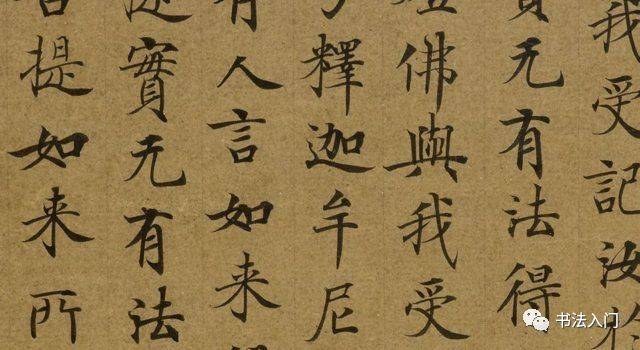 我受記汝於
實无有法得
佛與我受
釋迦牟尼
有人言如来
實无有法
提如来所
书法入门